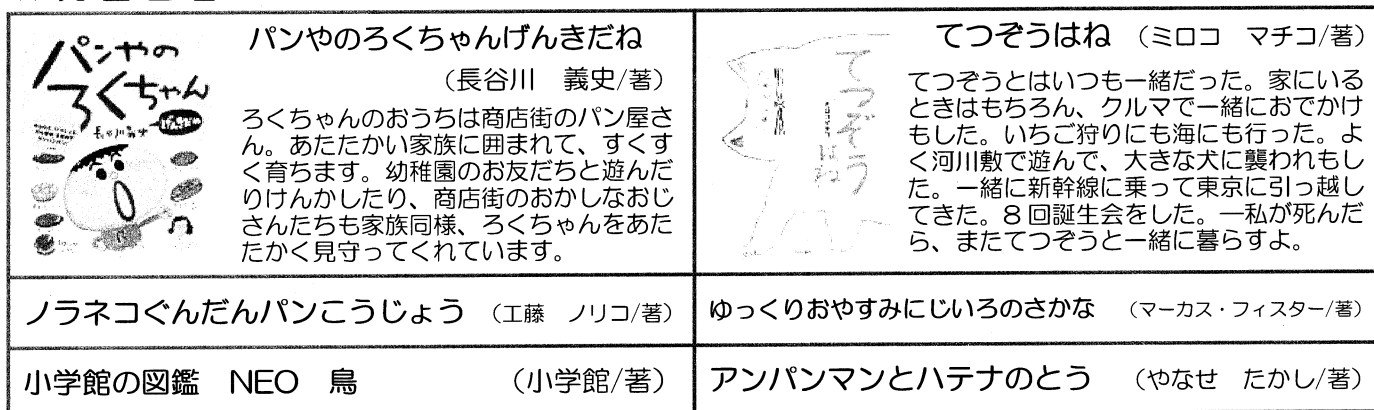 パンやの
ろくちゃん
長谷川義史
パンやのろくちゃんげんきだね
（長谷川　義史/著）
ろくちゃんのおうちは商店街のパン屋さ
ん。あたたかい家族に囲まれて、すくす
く育ちます。幼稚園のお友だちと遊んだ
りけんかしたり、商店街のおかしなおじ
さんたちも家族同様、ろくちゃんをあた
たかく見守ってくれています。
てつぞう
はね
てつぞうはね　（ミロコ　マチコ/著）
てつぞうとはいつも一緒だった。家にいる
ときはもちろん、クルマで一緒におでかけ
もした。いちご狩りにも海にも行った。よ
く河川敷で遊んで、大きな犬に襲われもし
た。一緒に新幹線に乗って東京に引っ越し
てきた。８回誕生会をした。―私が死んだ
ら、またてつぞうと一緒に暮らすよ。
ノラネコぐんだんパンこうじょう　（工藤　ノリコ/著）
ゆっくりおやすみにじいろのさかな　（マーカス・フィスター/著）
小学館の図鑑　NEO　鳥　（小学館/著）
アンパンマンとハテナのとう　（やなせ　たかし/著）